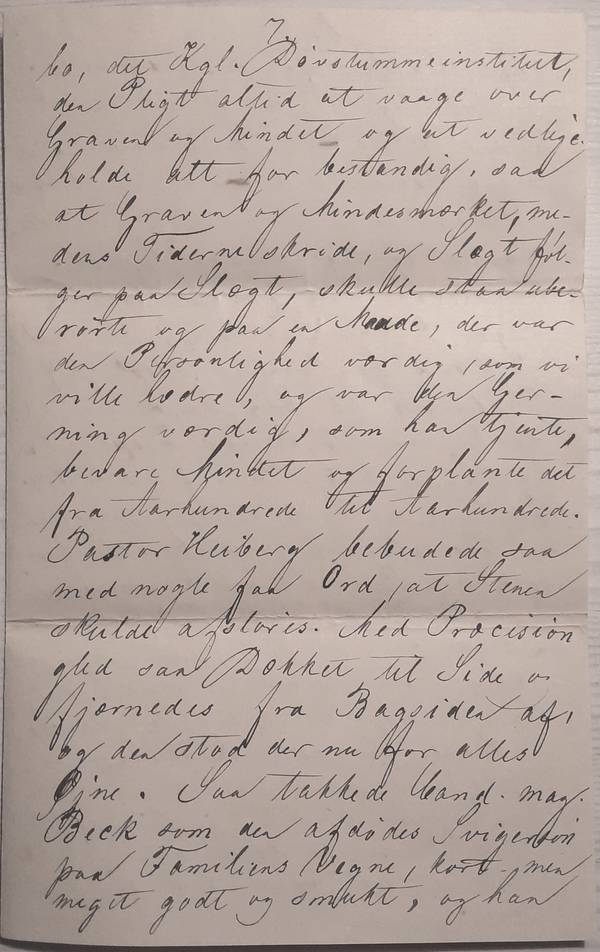 7.
bo, det Kgl. Døvstummeinstitut,
den Pligt altid at vaage over
Graven og Mindet og at vedlige-
holde alt for bestandig, saa
at Graven og Mindesmærket, me-
dens Tiderne skride, og Slægt føl-
ger paa Slægt, skulle staa ube-
rørte og paa en Maade, der var
den Personlighed værdig, som vi
ville hædre, og var den Ger-
ning værdig, som han tjente,
bevare Mindet og forplante det
fra Aarhundrede til Aarhundrede.
Pastor Heiberg bebudede saa
med nogle faa Ord, at Stenen
skulde afsløres. Med Præcision
gled saa Dækket til Side o
fjærnedes fra Bagsiden af,
og den stod der nu for alles
Øjne. Saa takkede Cand. mag.
Beck som den afdødes Svigersøn
paa Familiens Vegne, kort men
meget godt og smukt, og han